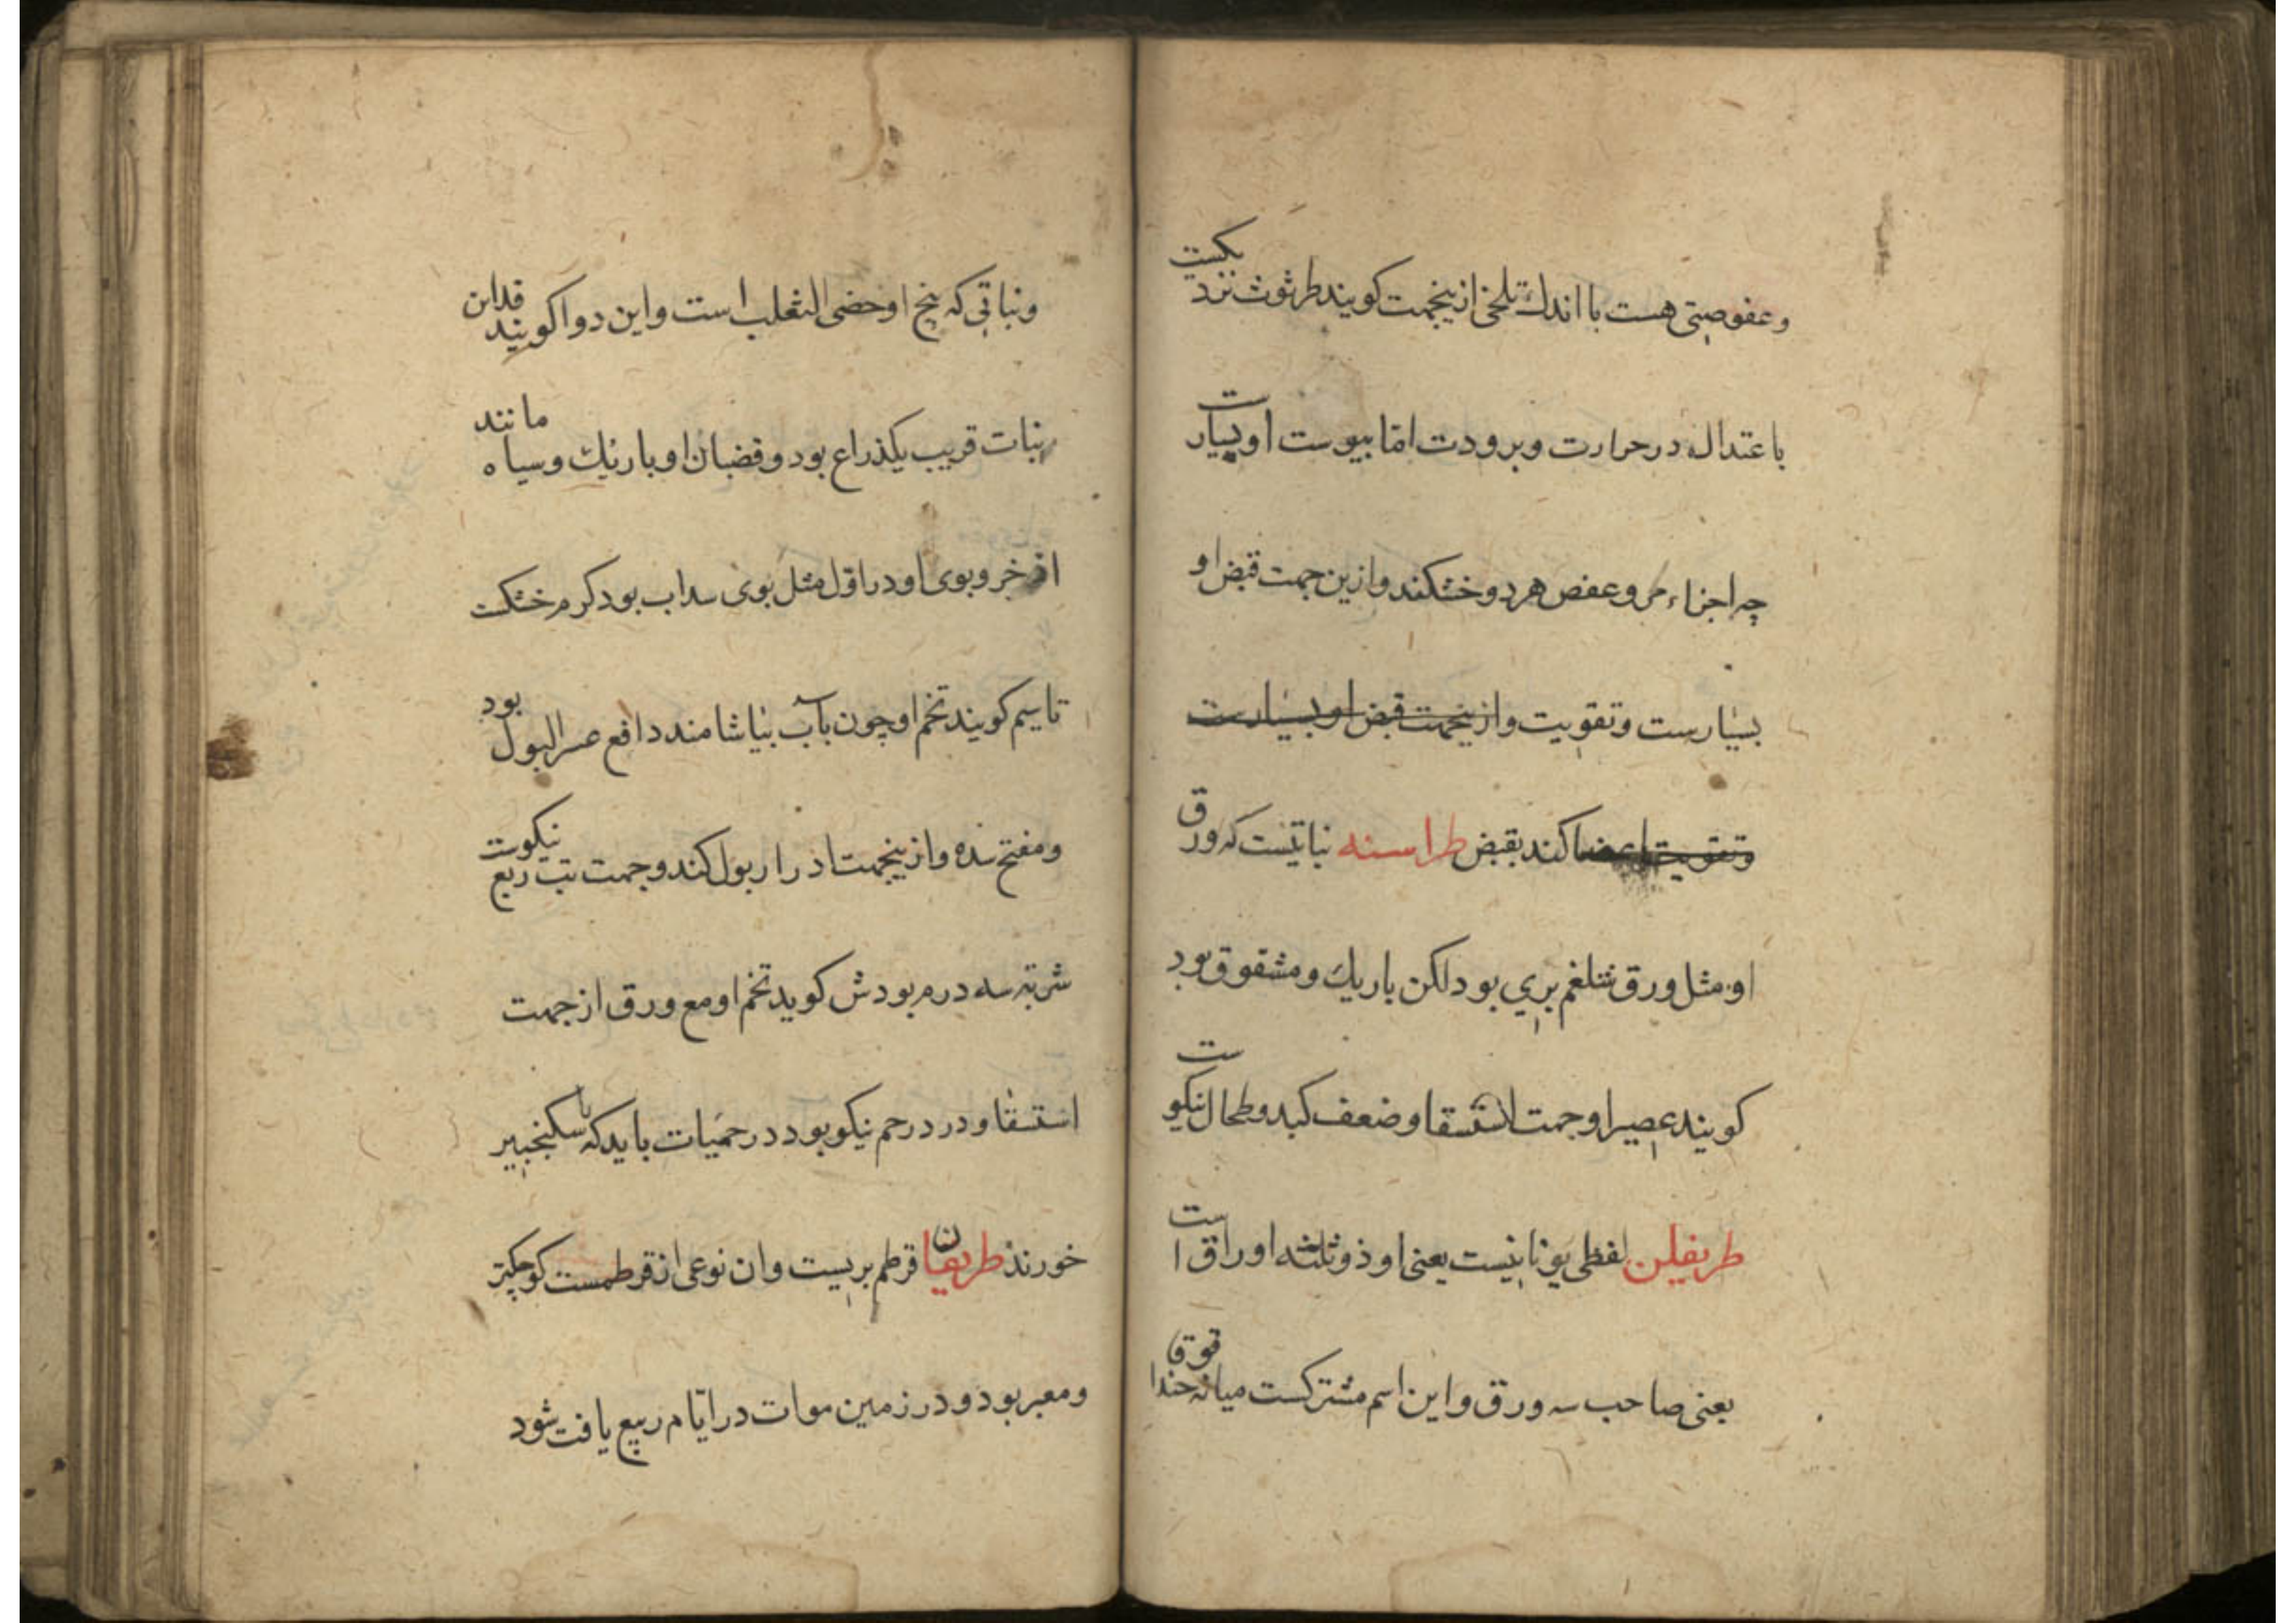 وعفوصتی هست با اندك تلخی ازینجهت کویند طرثوث نزدیکست
باعتدال در حرارت وبرودت امّا یبوست او بسیارست
چه اجزاء مر وعفص هر دو خشکند وازین جهت قبض او
بسیارست وتقویت وازینجهت قبض او بسیارست
وتقویت اعضا کند بقبض طراسنه نباتیست که ورق
او مثل ورق شلغم بری بود لکن باریك ومشقوق بود
کویند عصیر او جهت استسقا وضعف کبد وطحال نیکوست
طریفلن لفظی یونانیست یعنی او ذو ثلثه اوراق است
یعنی صاحب سه ورق واین اسم مشترکست میانه حندقوقا
ونباتی که بیخ او خصی الثعلب است واین دوا کویند قداین
نبات قریب یکذراع بود وقضبان او باریك وسیاه مانند
اذخر وبوی او در اوّل مثل بوی سداب بود کرم خشکست
تاسیم کویند تخم او چون بآب بیاشامند دافع عسر البول بود
ومفتح سده وازینجهت ادرار بول کند وجهت تب ربع نیکوست
شربته سه درم بود ش کوید تخم او مع ورق از جهت
استسقا ودرد رحم نیکو بود در حمیات باید که با سکنجبیر
خورند طریفان قرطم بریست وان نوعی از قرطمست کوچکتر
ومعبر بود ودر زمین موات در ایّام ربیع یافت شود